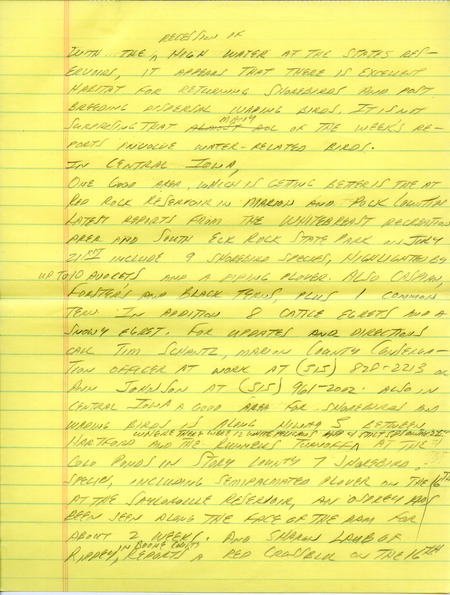 RECESSION OF
WITH THE HIGH WATER AT THE STATES RES-
ERVOIRS, IT APPEARS THAT THERE IS EXCELLENT
HABITAT FOR RETURNING SHOREBIRDS AND POST
BREEDING DISPERSAL WADING BIRDS. IT IS NOT
MANY
SURPRISING THAT ALMOST ALL OF THE WEEK'S RE-
PORTS INVOLVE WATER-RELATED BIRDS.
IN CENTRAL IOWA,
ONE GOOD AREA, WHICH IS GETTING BETTER IS THE AT
RED ROCK RESERVOIR IN MARION AND POLK COUNTIES
LATEST REPORTS FROM THE WHITEBREAST RECREATION
AREA AND SOUTH ELK ROCK STATE PARK ON JULY
21ST INCLUDE 9 SHOREBIRD SPECIES, HIGHLIGHTED BY
UP TO 10 AVOCETS AND A PIPING PLOVER. ALSO CASPIAN,
FORSTER'S AND BLACK TERNS, PLUS 1 COMMON
TERN. IN ADDITION 8 CATTLE EGRETS AND A
SNOWY EGRET. FOR UPDATES AND DIRECTIONS
CALL TIM SCHANTZ, MARION COUNTY CONSERVA-
TION OFFICER AT WORK AT (515) 828-2213 OR
ANN JOHNSON AT (515) 961-2002. ALSO IN
CENTRAL IOWA A GOOD AREA FOR SHOREBIRDS AND
WADING BIRDS IS ALONG HIGHWAY 5 BETWEEN
WHERE THERE WERE 12 WHITE PELICANS AND 4 STILT SPS ON
HARTFORD AND THE RUNNELLS TURNOFF. AT THE
COLO PONDS IN STORY COUNTY 7 SHOREBIRD
SPECIES, INCLUDING SEMIPALMATED PLOVER ON THE 16TH
AT THE SAYLORVILLE RESERVOIR, AN OSPREY HAS
BEEN SEEN ALONG THE FACE OF THE DAM FOR
ABOUT 2 WEEKS. AND SHARON LAUB OF
IN BOONE COUNTY
RIPPEY, REPORTS A RED CROSSBILL ON THE 16TH